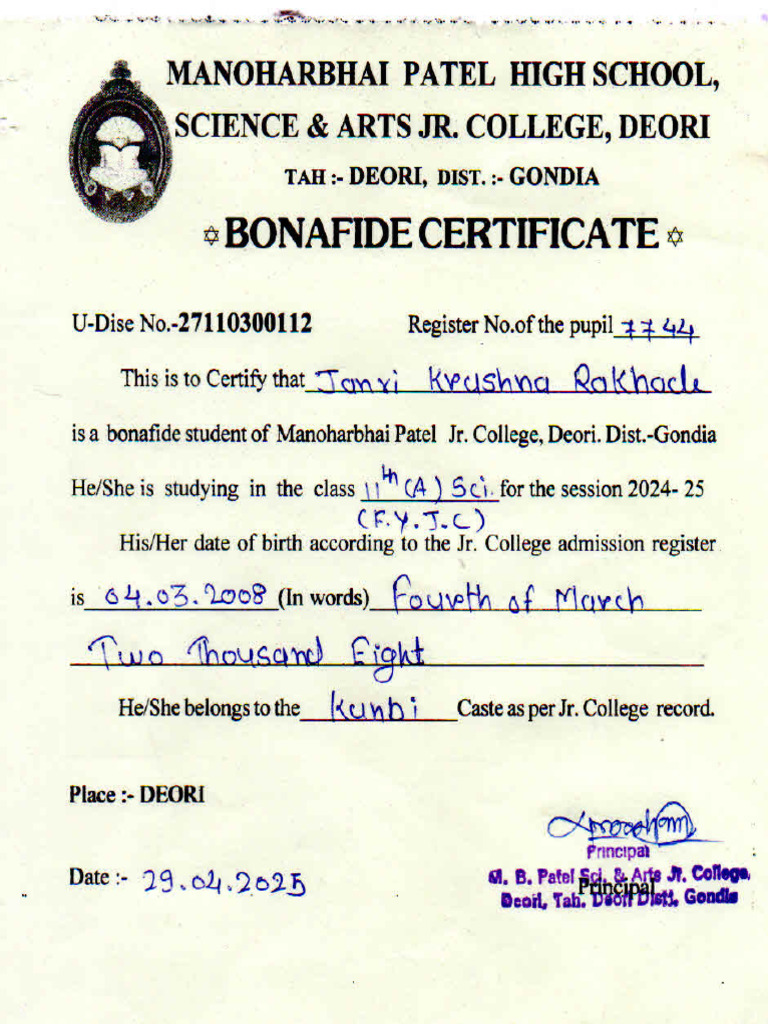 MANOHARBHAI PATEL HIGH SCHOOL,
SCIENCE & ARTS JR. COLLEGE, DEORI
TAH :- DEORI, DIST. :- GONDIA
BONAFIDE CERTIFICATE
U-Dise No.-27110300112 Register No.of the pupil 7744
This is to Certify that Janvi Krushna Rakhade
is a bonafide student of Manoharbhai Patel Jr. College, Deori. Dist.-Gondia
He/She is studying in the class 11th (A) Sci. for the session 2024- 25
(F.Y.J.C)
His/Her date of birth according to the Jr. College admission register
is 04.03.2008 (In words) Fourth of March
Two Thousand Eight
He/She belongs to the Kunbi Caste as per Jr. College record.
Place :- DEORI
Principal
Date :- 29.04.2025
M. B. Patel Sci. & Arts Jr. College,
Principal
Deori, Tah. Deori Distt. Gondia